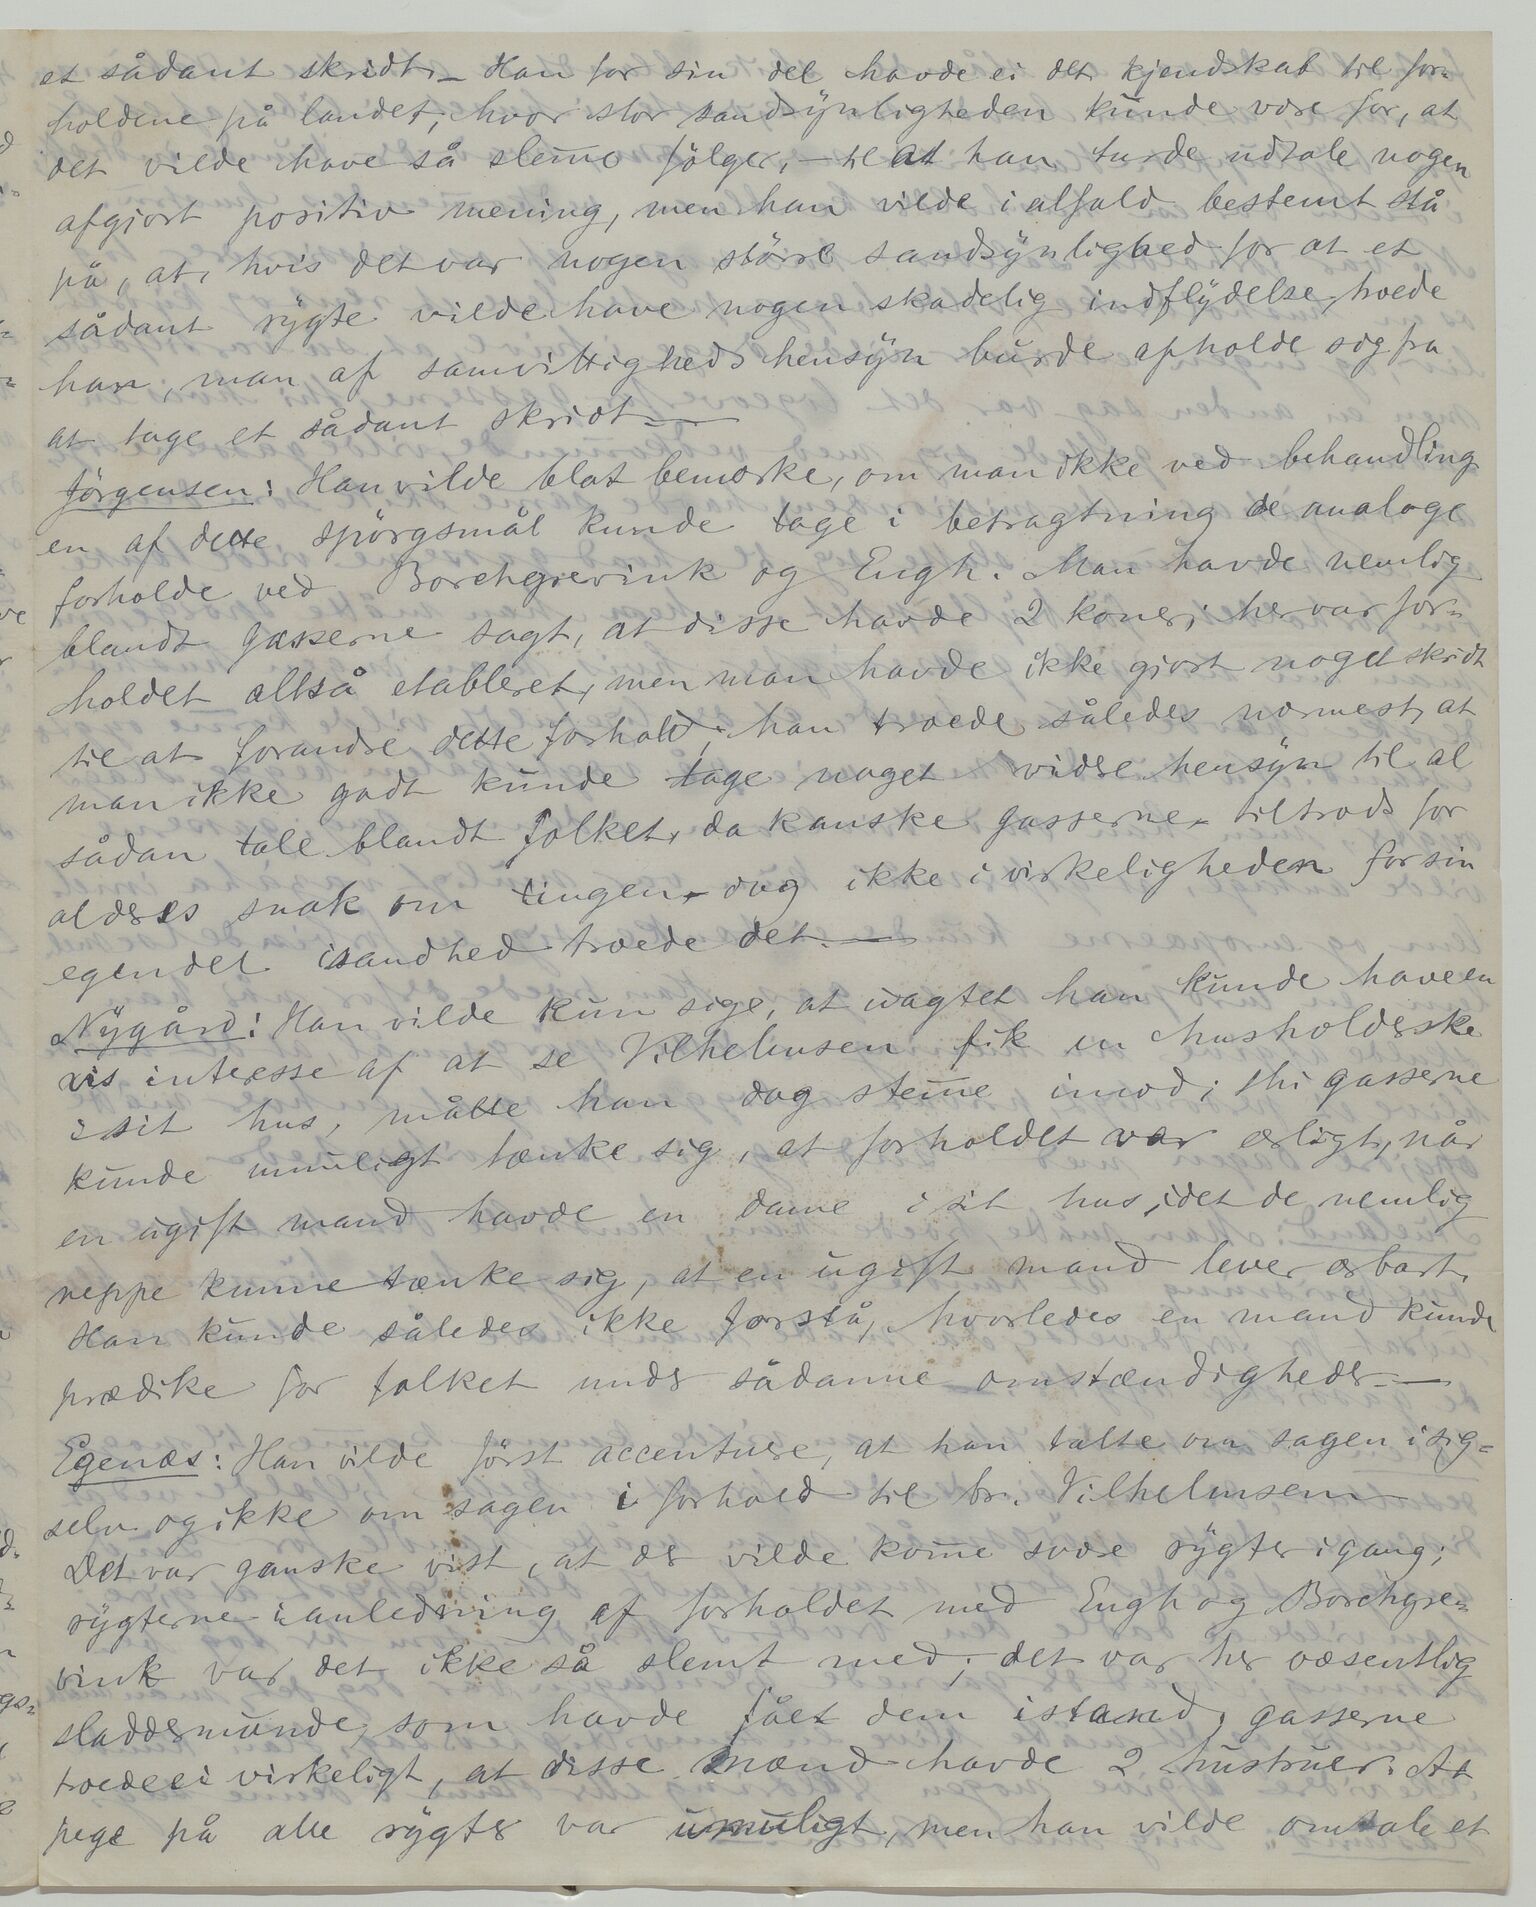 et sådant skridt. – Han for sin del havde ei det kjendskab til for-
holdene på landet, hvor stor sandsynligheden kunde være for, at
det vilde have så slem̅e følger, – til at han turde udtale nogen
afgjort positiv mening, men han vilde ialfald bestemt stå
på, at, hvis det var nogen større sandsynlighed for at et
sådant rygte vilde have nogen skadelig indflydelse, troede
han, man af samvittighedshensyn burde afholde sig fra
at tage et sådant skridt. —
Jørgensen: Han vilde blot bemærke, om man ikke ved behandling
en af dette spørgsmål kunde tage i betragtning de analoge
forholde ved Borchgrevink og Engh. Man havde nemlig
blandt gasserne sagt, at disse havde 2 koner; her var for-
holdet altså etableret, men man havde ikke gjort noget skridt
til at forandre dette forhold; han troede således nærmest, at
man ikke godt kunde tage noget videre hensyn til al
sådan tale blandt folket, da kanske gasserne – tiltrods for
al deres snak om tingen – dog ikke i virkeligheden for sin
egen del isandhed troede det. —
Nygård: Han vilde kun sige, at uagtet han kunde have en
vis interesse af at se Vilhelmsen fik en husholderske
i sit hus, måtte han dog stem̅e imod; thi gasserne
kunde umuligt tænke sig, at forholdet var ærligt, når
en ugift mand havde en dame i sit hus, idet de nemlig
neppe kunne tænke sig, at en ugift mand lever ærbart.
Han kunde således ikke forstå, hvorledes en mand kunde
prædike for folket under sådanne omstændigheder. —
Egenæs: Han vilde først accentuere, at han talte om sagen i sig-
selv og ikke om sagen i forhold til br. Vilhelmsen –
Det var ganske vist, at der vilde kom̅e svære rygter igang;
rygterne i anledning af forholdet med Engh og Borchgre-
vink var det ikke så slemt med; det var her væsentlig
sladdermunde, som havde fået dem istand, gasserne
troede ei virkeligt, at disse mænd havde 2 hustruer. At
pege på alle rygter var umuligt, men han vilde omtale et